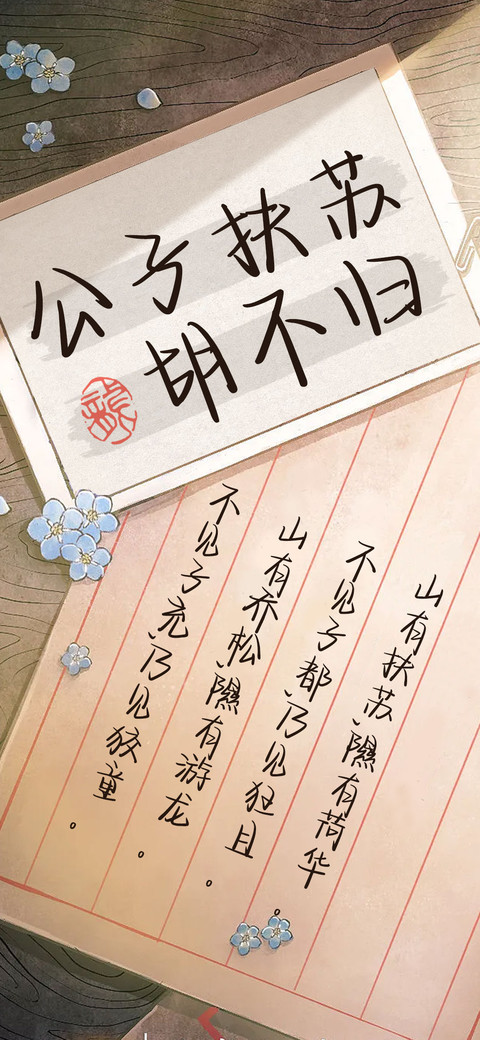 公子扶苏
胡不归
山有扶苏、隰有荷华。
不见子都、乃见狂且。
山有乔松、隰有游龙。
不见子充、乃见狡童。